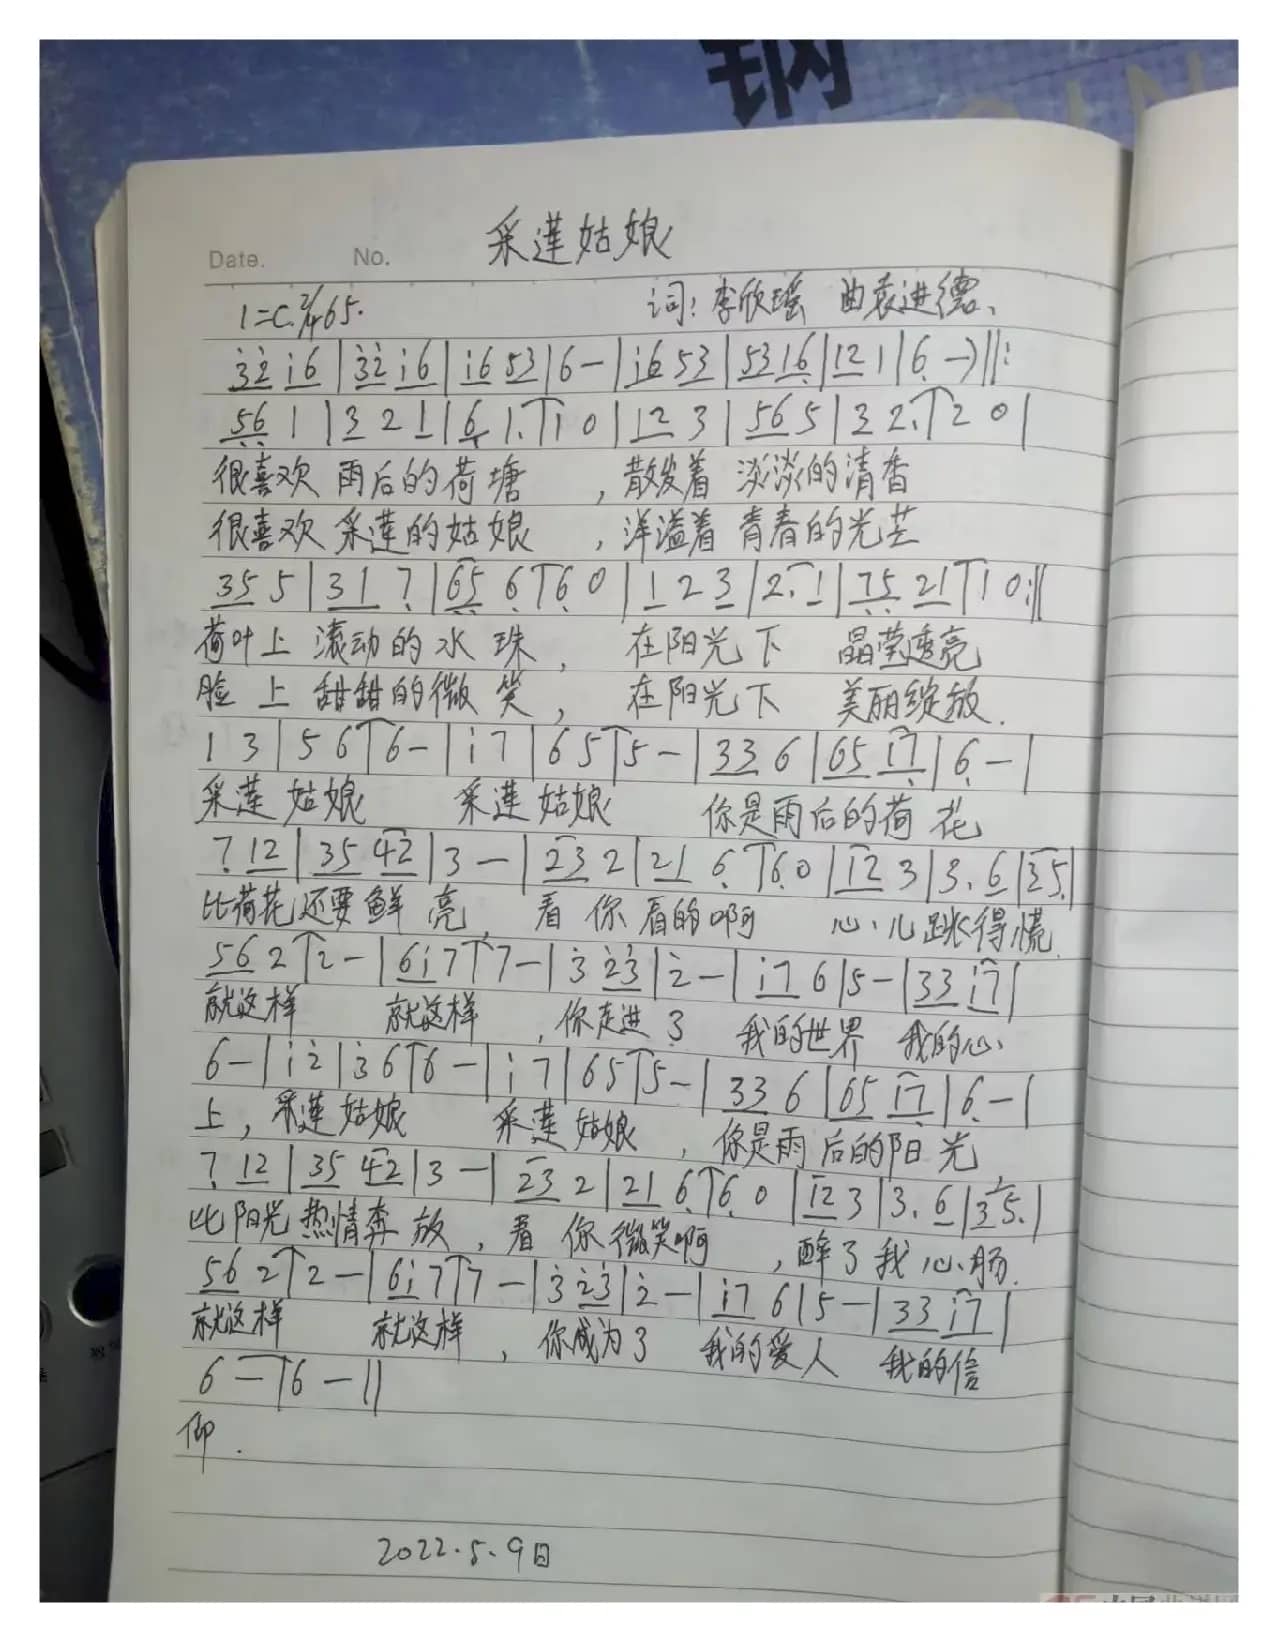 钢
Date. No. 采莲姑娘
1=C 2/4 65. 词:李欣瑶 曲袁进德、
3̇2̇ i6 | 3̇2̇ i6 | i6 53 | 6 - | i6 53 | 53 16̣ | 12 1 | 6̣ -) ‖:
5̣6̣ 1 | 3 2 1 | 6̣ 1. | 1 0 | 12 3 | 56 5 | 3 2. | 2 0 |
很喜欢 雨后的荷塘 ,散发着 淡淡的清香
很喜欢 采莲的姑娘 ,洋溢着 青春的光芒
35 5 | 31 7̣ | 6̣5̣ 6̣ | 6̣ 0 | 1 2 3 | 2. 1 | 7̣5̣ 21 | 1 0 :‖
荷叶上 滚动的水 珠, 在阳光下 晶莹透亮
脸 上 甜甜的微 笑, 在阳光下 美丽绽放.
1 3 | 5 6 | 6 - | i 7 | 6 5 | 5 - | 33 6 | 65 17̣ | 6̣ - |
采莲 姑娘 采莲 姑娘 你是雨后的荷 花
7̣ 12 | 35 42 | 3 - | 23 2 | 21 6̣ | 6̣ 0 | 12 3 | 3. 6 | 35. |
比荷花还要鲜 亮, 看 你看的啊 心儿跳得慌
56 2 | 2 - | 6i 7 | 7 - | 3̇ 2̇3̇ | 2̇ - | i7 6 | 5 - | 33 i7 |
就这样 就这样 ,你走进了 我的世界 我的心
6 - | i 2̇ | 3̇ 6 | 6 - | i 7 | 65 | 5 - | 33 6 | 65 17̣ | 6̣ - |
上, 采莲 姑娘 采莲 姑娘 ,你是雨后的阳 光
7̣ 12 | 35 42 | 3 - | 23 2 | 21 6̣ | 6̣ 0 | 12 3 | 3. 6 | 35. |
比阳光热情奔 放 ,看 你微笑啊 ,醉了我心肠.
56 2 | 2 - | 6i 7 | 7 - | 3̇ 2̇3̇ | 2̇ - | i7 6 | 5 - | 33 i7 |
就这样 就这样 ,你成为了 我的爱人 我的信
6 - | 6 - ‖
仰.
2022.5.9日